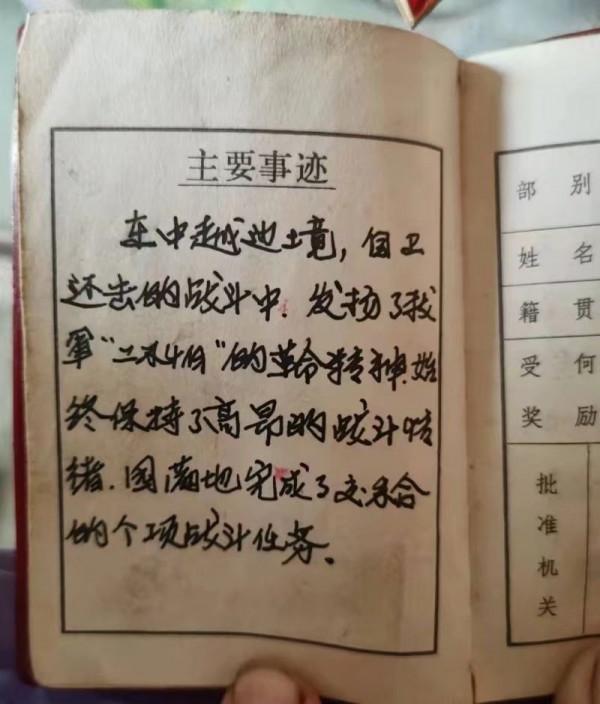 主要事迹
在中越边境，自卫
还击的战斗中．发扬了我
军“二不怕”的革命精神，始
终保持了高昂的战斗情
绪．圆满地完成了交给
的个项战斗任务．
部别
姓名
籍贯
受何
奖励
批准机关